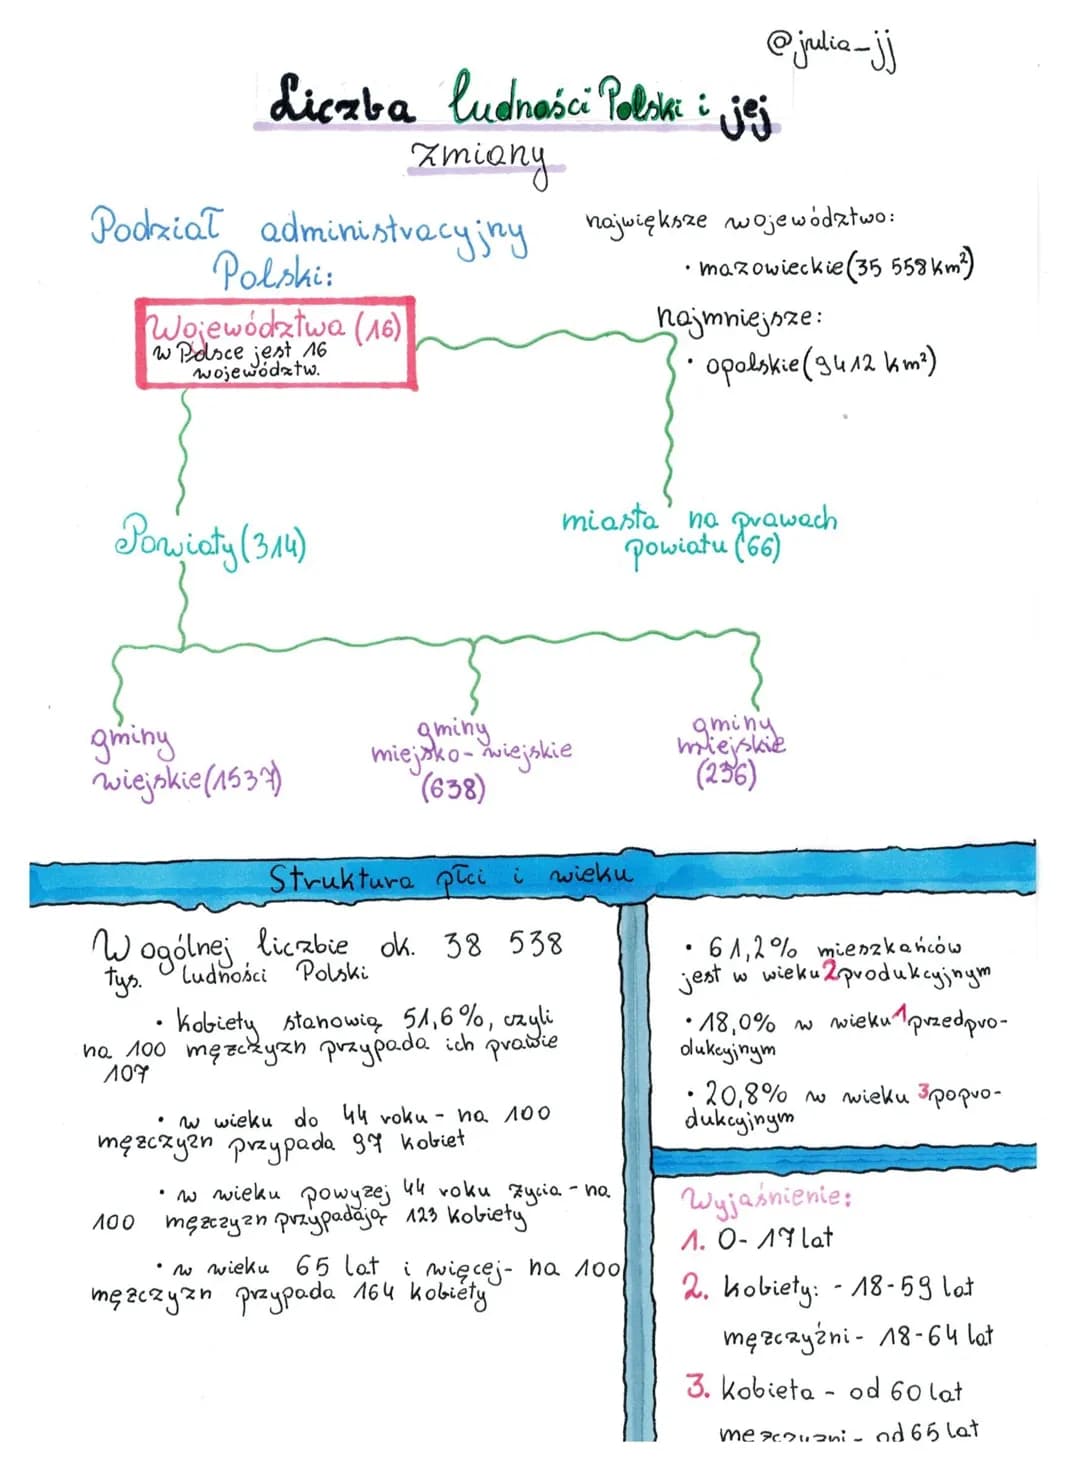 @julia_jj
Liczba ludności Polski i jej
zmiany
Podział administracyjny
Polski:
największe województwo:
• mazowieckie (35 558 km²)
najmniejsze:
• opolskie (9412 km²)
Województwa (16)
w Polsce jest 16
województw.
Powiaty (314)
miasta na prawach
powiatu (66)
gminy
wiejskie (1537)
gminy
miejsko-wiejskie
(638)
gminy
miejskie
(236)
Struktura płci i wieku
W ogólnej liczbie ok. 38 538
tys. ludności Polski
• kobiety stanowią 51,6%, czyli
na 100 mężczyzn przypada ich prawie
107
• w wieku do 44 roku - na 100
mężczyzn przypada 97 kobiet
• w wieku powyżej 44 roku życia - na
100 mężczyzn przypadają 123 kobiety
• w wieku 65 lat i więcej - na 100
mężczyzn przypada 164 kobiety
• 61,2% mieszkańców
jest w wieku 2 produkcyjnym
• 18,0% w wieku 1 przedpro-
dukcyjnym
• 20,8% w wieku 3 popro-
dukcyjnym
Wyjaśnienie:
1. 0-17 lat
2. kobiety: - 18-59 lat
mężczyźni - 18-64 lat
3. kobieta - od 60 lat
mężczyzni - od 65 lat